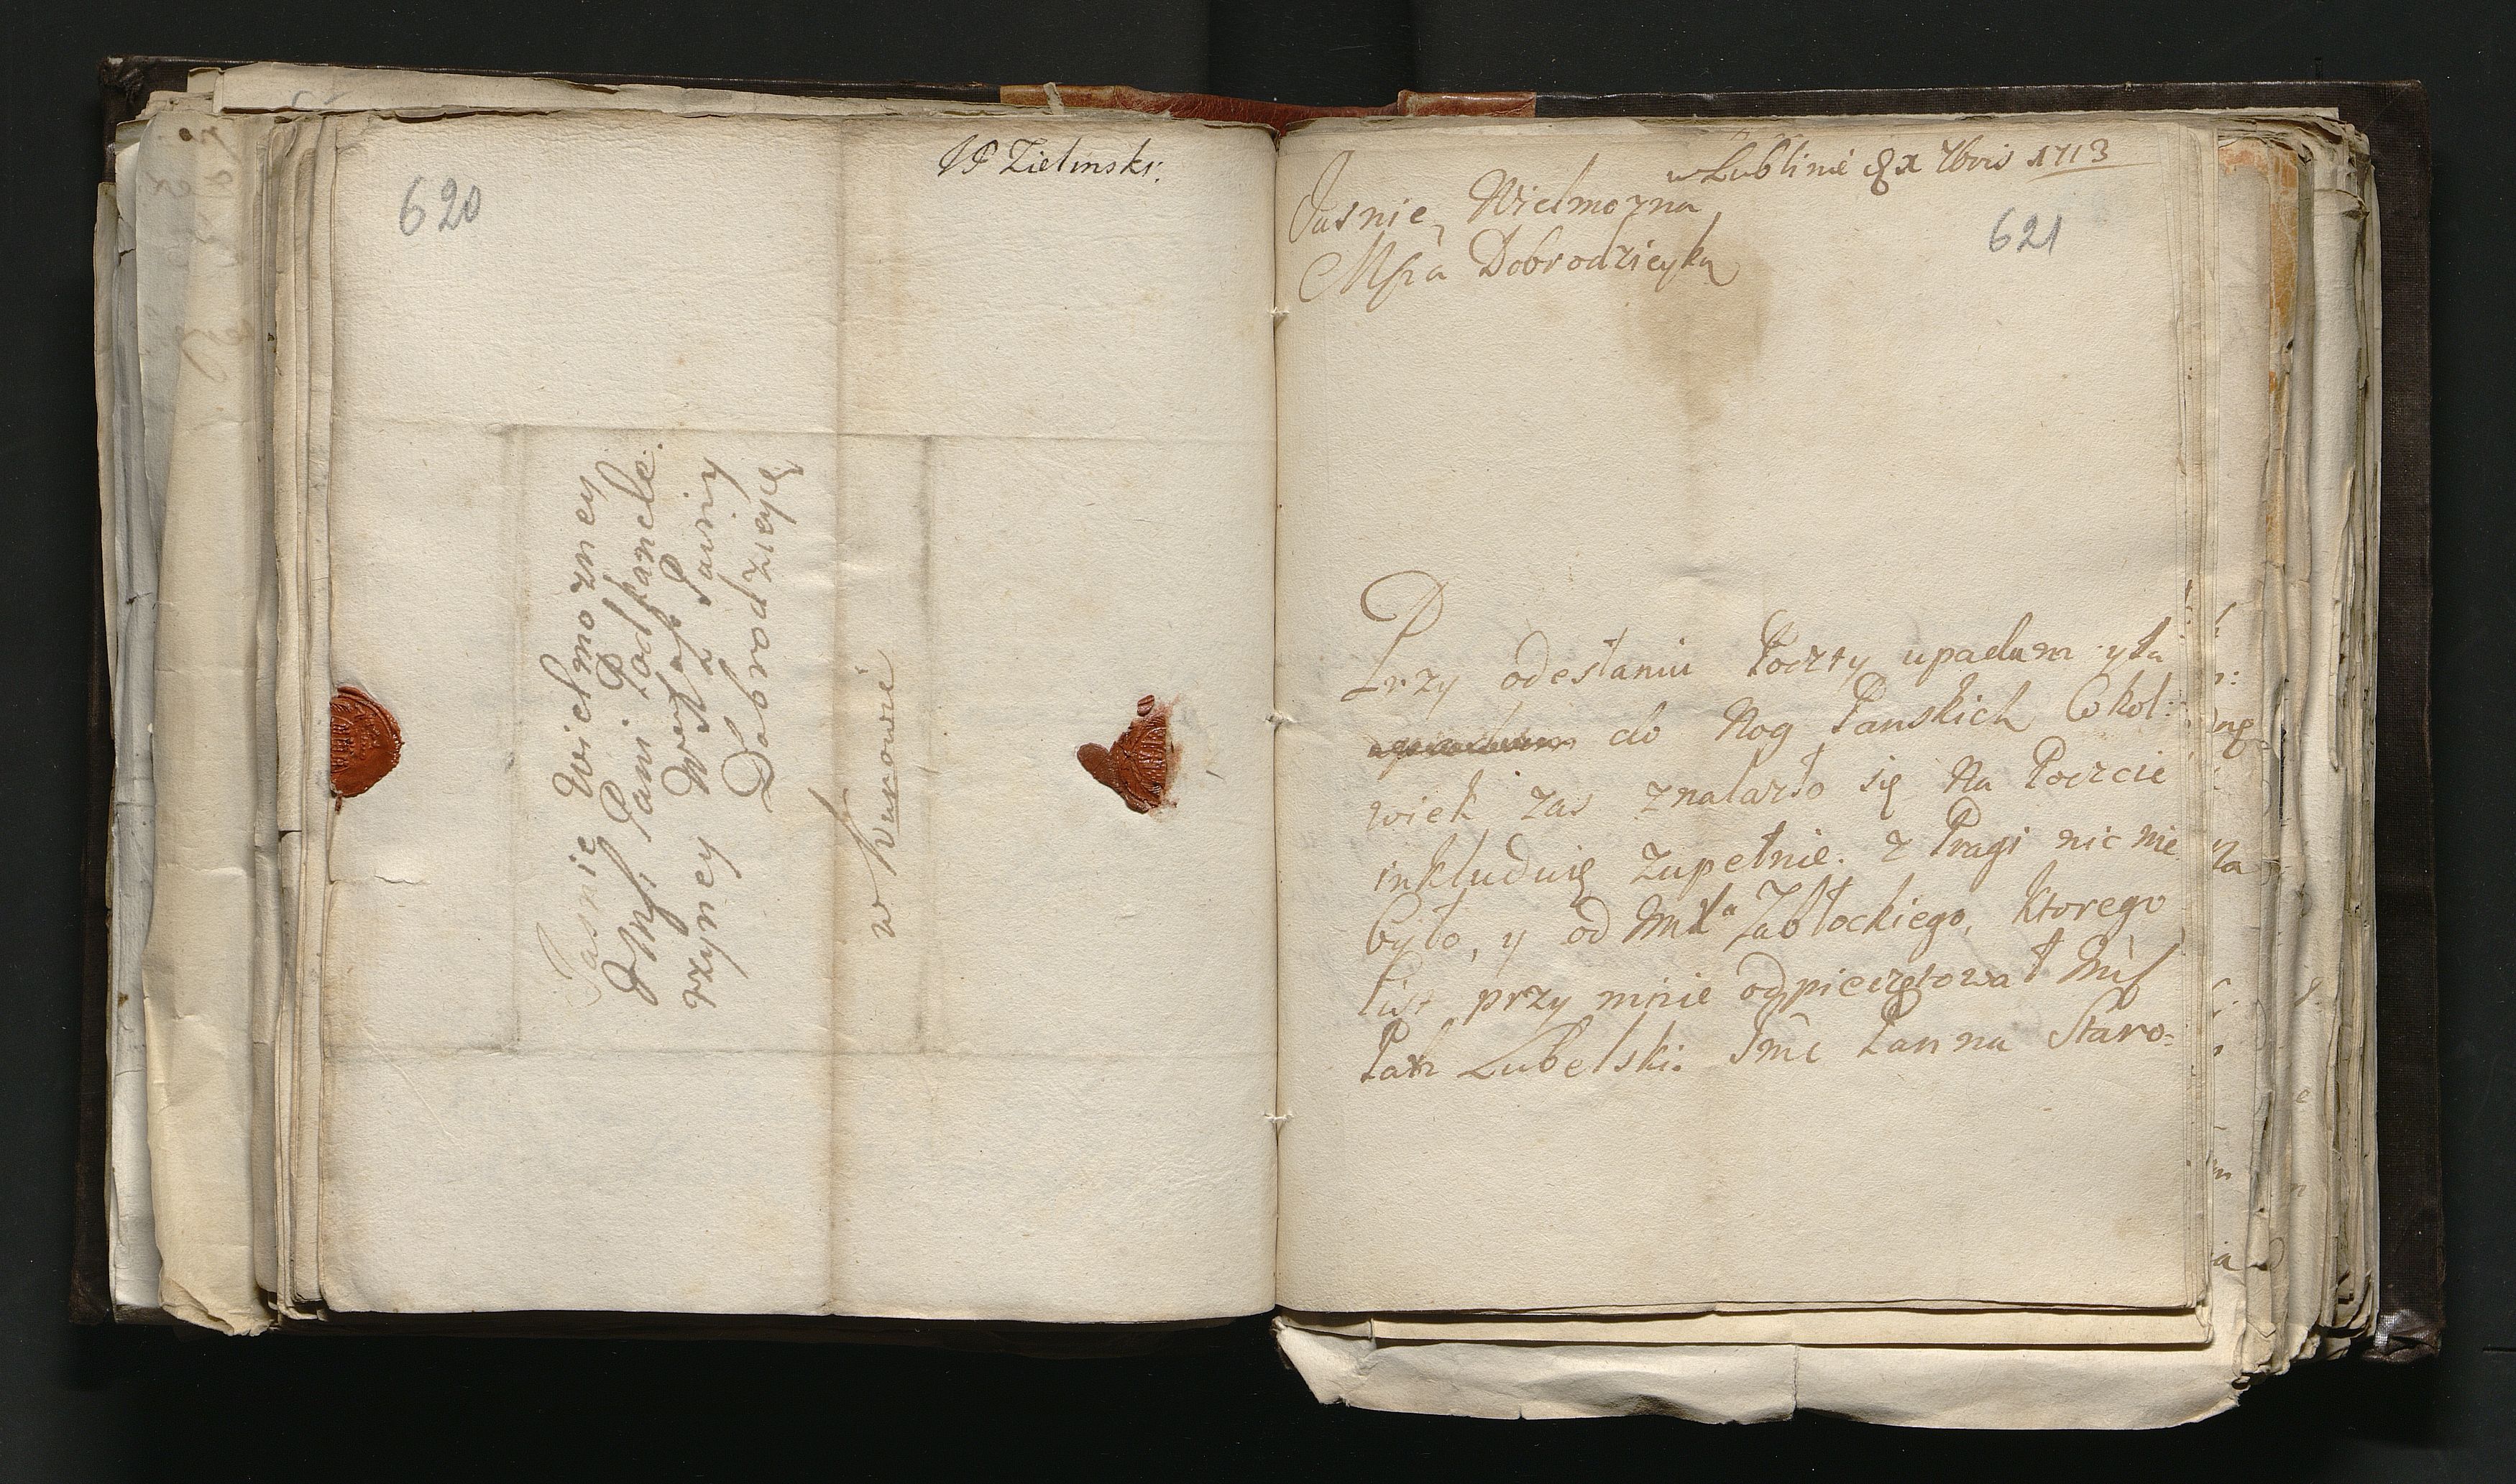 620
JP Zielinski:
Jasnie Wielmozney
Jmści Pani Podkancle
rzyney W Paniey
Dobrodzieyce
w Kurowie
w Lublinie 7bris 1713
Jasnie Wielmozna
621
Mścia Dobrodzieyko
Przy odesłaniu Poczty upadam
do Nog Panskich Cokol:
wiek zas znalazło się Na Poczcie
inkluduię zupełnie. z Pragi nic nie
było, y od Zabłockiego, ktorego
list przy mnie odpieczętował
Lubelski. Jmć Panna Staro=